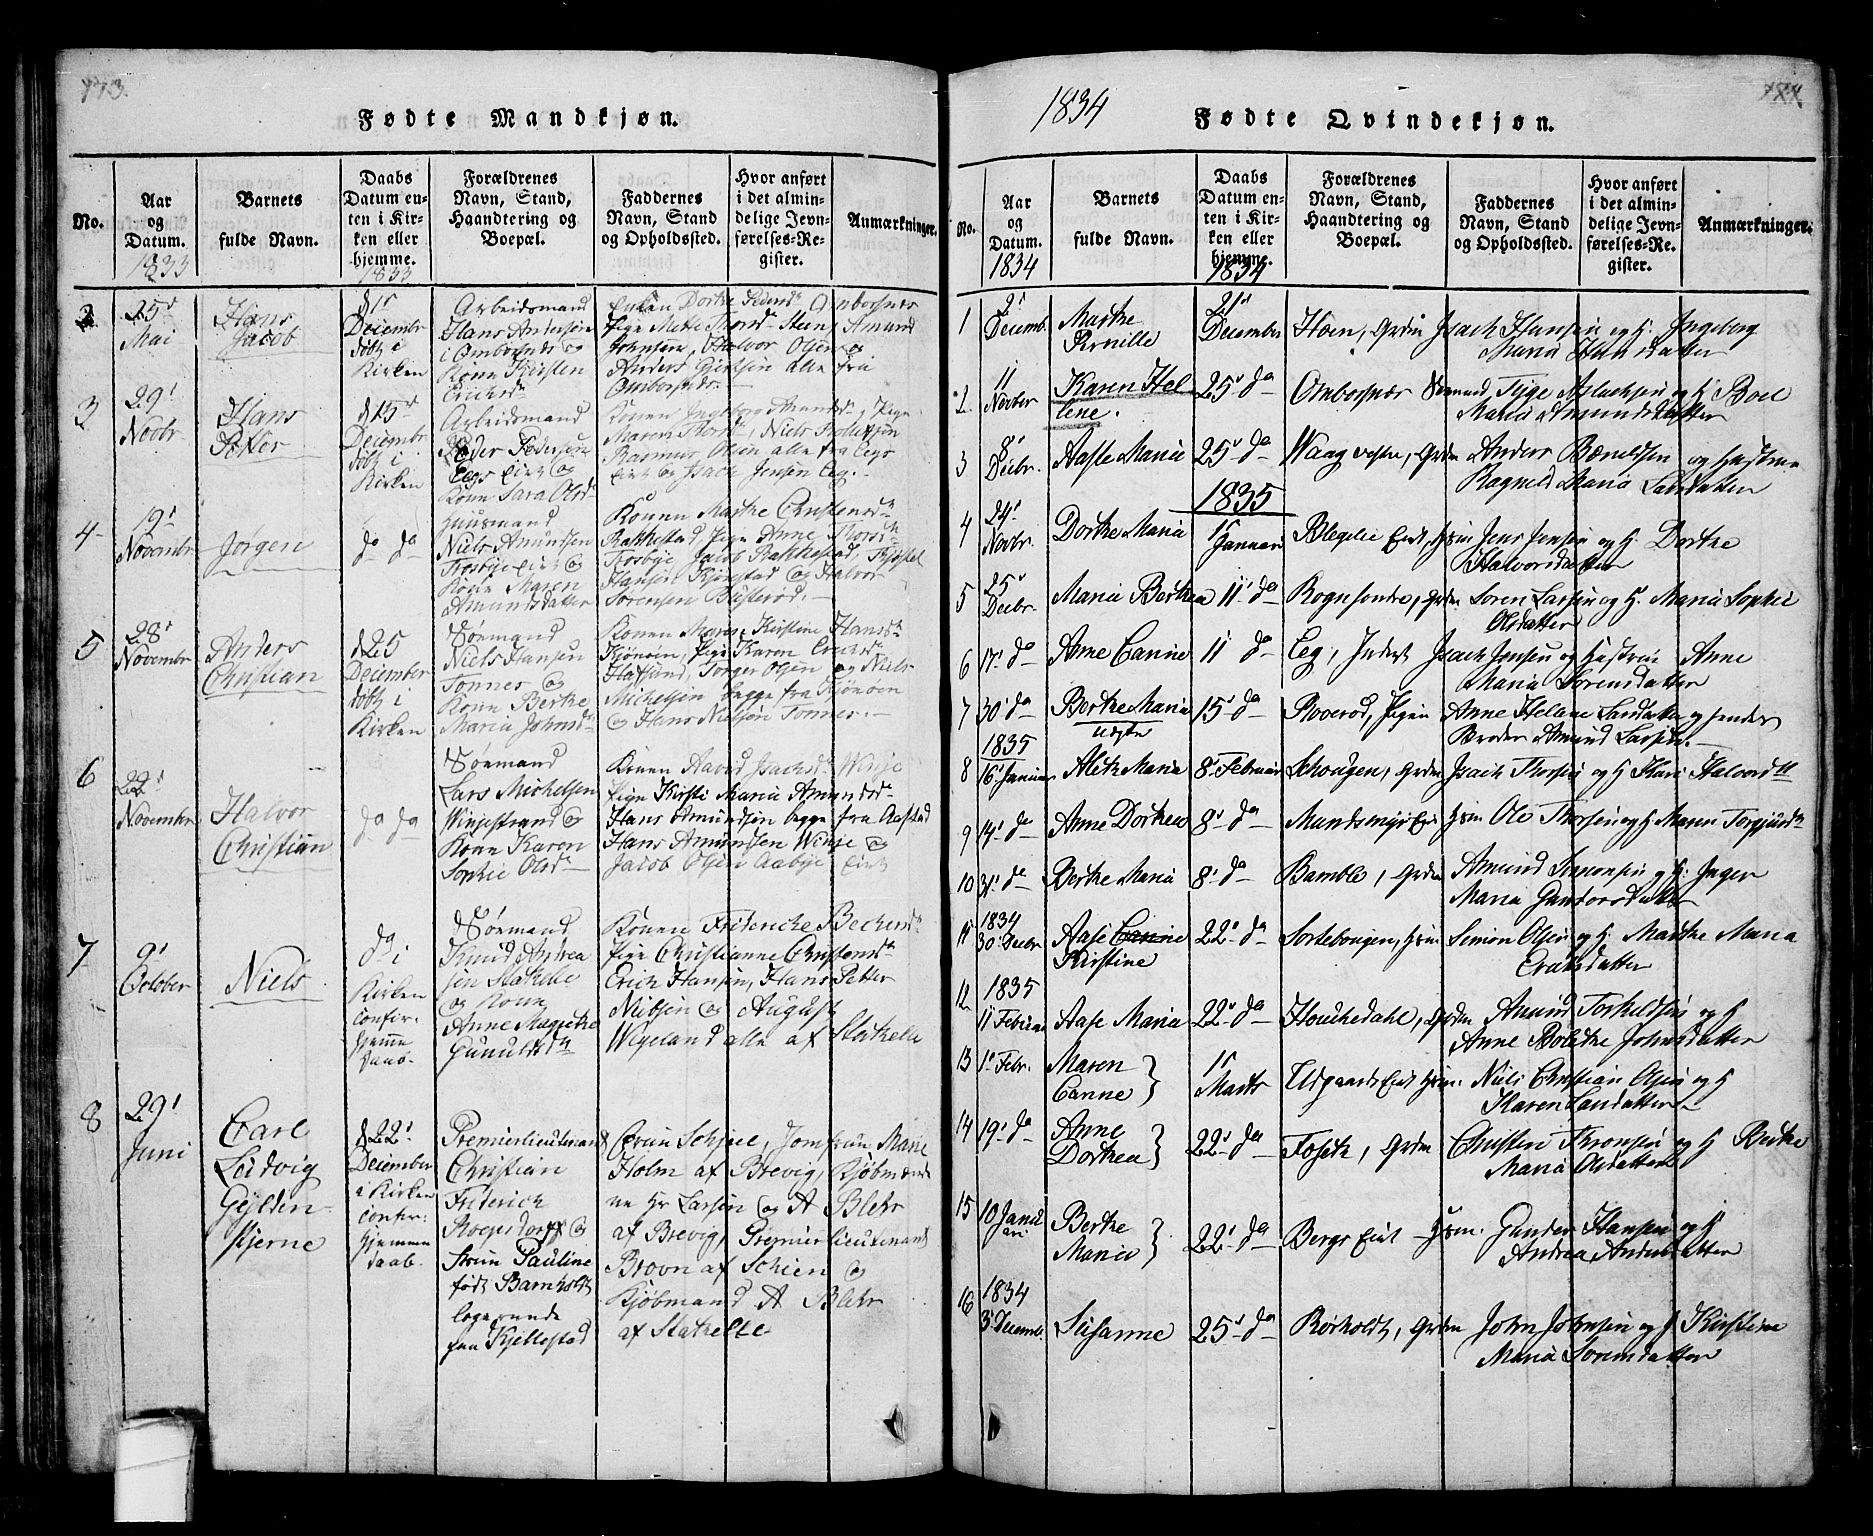 173.
Fødte Mandkjøn.
No.
Aar og Datum.
1833
Barnets fulde Navn.
Daabs Datum enten i Kirken eller hjemme.
1833
Forældrenes Navn, Stand, Haandtering og Boepæl.
Faddernes Navn, Stand og Opholdssted.
Hvor anført i det almindelige Jevnførelses-Register.
Anmærkninger.
2
25d
Mai
Hans
Jacob
d 1s
Decembr
døbt i
Kirken
Arbeidsmand
Hans Andersen
i Ombosnæs og
Kone Kirsten
Erichsd
Pige Mette Thord Steen Amund
Johnsen, Halvor Olsen og
Anders Giertsen alle fra
Ombosnæs.
3
29
Novbr
Hans
Petter
d 15d
Decembr
døbt i
Kirken
Arbeidsmand
Peder Pedersen
Eegs Eiet og
Kone Sara Olsd
Konen Ingeborg Amundsdr, Pige
Maren Thordr, Niels Tollefsen
Rasmus Olsen alle fra Eegs
Eiet og Isach Jensen Eeg.
4
19
Novembr
Jørgen
do do
Huusmand
Niels Amundsen
Trosbye Eiet og
Kone Maren
Amundsdatter
Konen Marthe Christensdr
Rakkestad Pige Anne Thordr
Trosbye Jacob Rakkestad, Kjøstel
Hansen Kjønstad og Halvor
Sørensen Blisterød.
5
28
Novembr
Anders
Christian
d 25
December
døbt i
Kirken
Sømand
Niels Hansen
Tonnes og
Kone Berthe
Maria Johnsd
Konen Maren Kirstine Hansdr
Kjønøen, Pige Karen Erichsdr
Hafsund, Torger Olsen og Niels
Michelsen begge fra Kjønøen
og Hans Nielsen Tonnes.
6
22
Novembr
Halvor
Christian
do do
Sømand
Lars Michelsen
Winjestrand og
Kone Karen
Sophie Olsdr
Konen Aavod Isachsdr Winje
Pige Kirsti Maria Amundsdr
Hans Amundsen begge fra Aafstad
Hans Amundsen Winje og
Jacob Olsen Aabye Eiet
7
9
October
Niels
do i
Kirken
confir:
hjemme
daab.
Sømand
Knud Andrea
sen Stathelle
og Kone
Anne Magrethe
Gunuldsdr
Konen Frideriche Beckersdr
Pige Christianne Christensdr
Erich Hansen, Hans Petter
Nielsen og August
Wigeland alle af Stathelle
8
29
Juni
Carl
Ludvig
Gylden-
stjerne
d 22
December
i Kirken
confir:
hjemme
daab.
Premierlieutnand
Christian
Friderich
Roepsdorff og
Fruen Pauline
født Barnholdt
logerende
paa Kjellestad
Fruen Schjøll, Jomfruen Marie
Holm af Brevig, Kjøbmænde
ne Hr Larsen og A Blehr
af Brevig, Premier lieutenand
Brovn af Schien og
Kjøbmand A Blehr
af Stathelle
1834
Fødte Qvindekjøn.
No.
Aar og Datum.
1834
Barnets fulde Navn.
Daabs Datum enten i Kirken eller hjemme.
1834
Forældrenes Navn, Stand, Haandtering og Boepæl.
Faddernes Navn, Stand og Opholdssted.
Hvor anført i det almindelige Jevnførelses-Register.
Anmærkninger.
1 2 Decemb. Marthe Pernille 21 Decembr Hoen, Grdm Isach Hansen og H. Ingeborg
Maria Hansdatter
2 11 Novber Karen Hellene. 25 do Ombosnæs Sømand Tyge Aslachsen og H. Boel
Maria Amundsdatter
3 8 Decbr. Aasle Maria 25 do Waag vestre, Grdm Anders Berntsen og Hustrue
Ragnild Maria Larsdatter
1835
4 24 Novbr. Dorthe Maria 1s Januari Blegelie Eiet, Hsm Jens Jensen og H. Dorthe
Halvorsdatter
5 25 Decbr. Maria Berthea 11 do Rogn søndre, Grdm Søren Larsen og H. Maria Sophie
Olsdatter
6 17 do Anne Canine 11 do Eeg, Inderst Isach Jensen og Hustrue Anne
Maria Sørensdatter
7 30 do Berthe Maria uægte 15 do Roverød, Pigen Anne Helene Larsdatter og hendes
Broder Amund Larsen.
1835
8 16 Januar Aleth Maria 8 Februar Schougen, Grdm Isach Thorsen og H Kari Halvordtr
9 14 do Anne Dorthea 8 do Mundsmyr Eie Hsm Ole Thorsen og H Maren Torgiusdr
10 31 do Berthe Maria 8 do Bamble, Grdm Amund Simonsen og H. Inger
Maria Gundersdatter
1834
11 30 Decbr Aase Canine Kirstine 22 do Sortebougen, Hsm Simon Olsen og H. Marthe Maria
Erichsdatter
1835
12 11 Februar Aase Maria 22 do Houchedahl, Grdm Amund Torkeldsen og H
Anne Bolethe Johnsdatter
13 1 Febr. Maren Canne 1s Marts Udgaards Eiet Hsm. Niels Christian Olsen og H
Karen Larsdatter
14 19 do Anne Dorthea 22 do Foseth, Grdm Christen Thronsen og H Birthe
Maria Olsdatter
15 10 Januari Berthe Maria 22 do Bergs Eiet Hsm. Gunder Hansen og H
Andrea Andersdatter
1834
16 3 Decemb. Susanne 25 do Rørholdt, Grdm John Johnsen og H Kirstine
Maria Sørensdatter